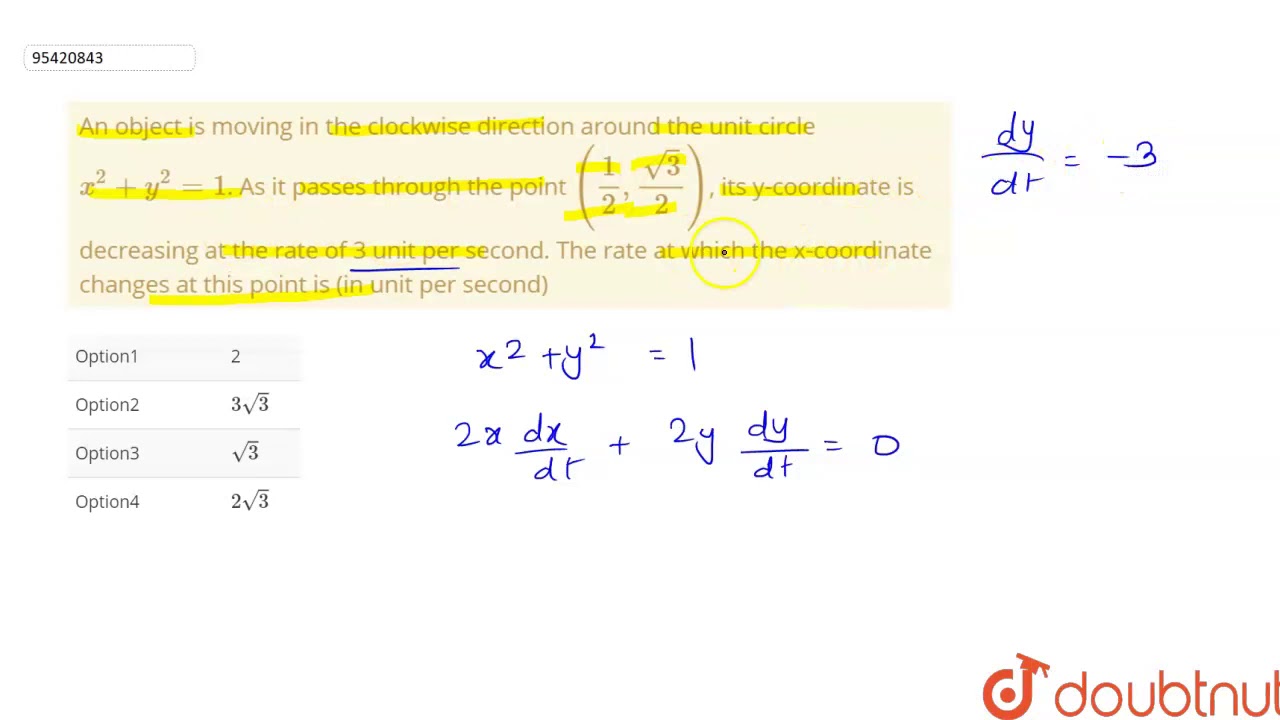 95420843
An object is moving in the clockwise direction around the unit circle
x² + y² = 1. As it passes through the point (1/2, √3/2), its y-coordinate is
decreasing at the rate of 3 unit per second. The rate at which the x-coordinate
changes at this point is (in unit per second)
dy/dt = -3
Option1 2
Option2 3√3
Option3 √3
Option4 2√3
x² + y² = 1
2x dx/dt + 2y dy/dt = 0
doubtnut